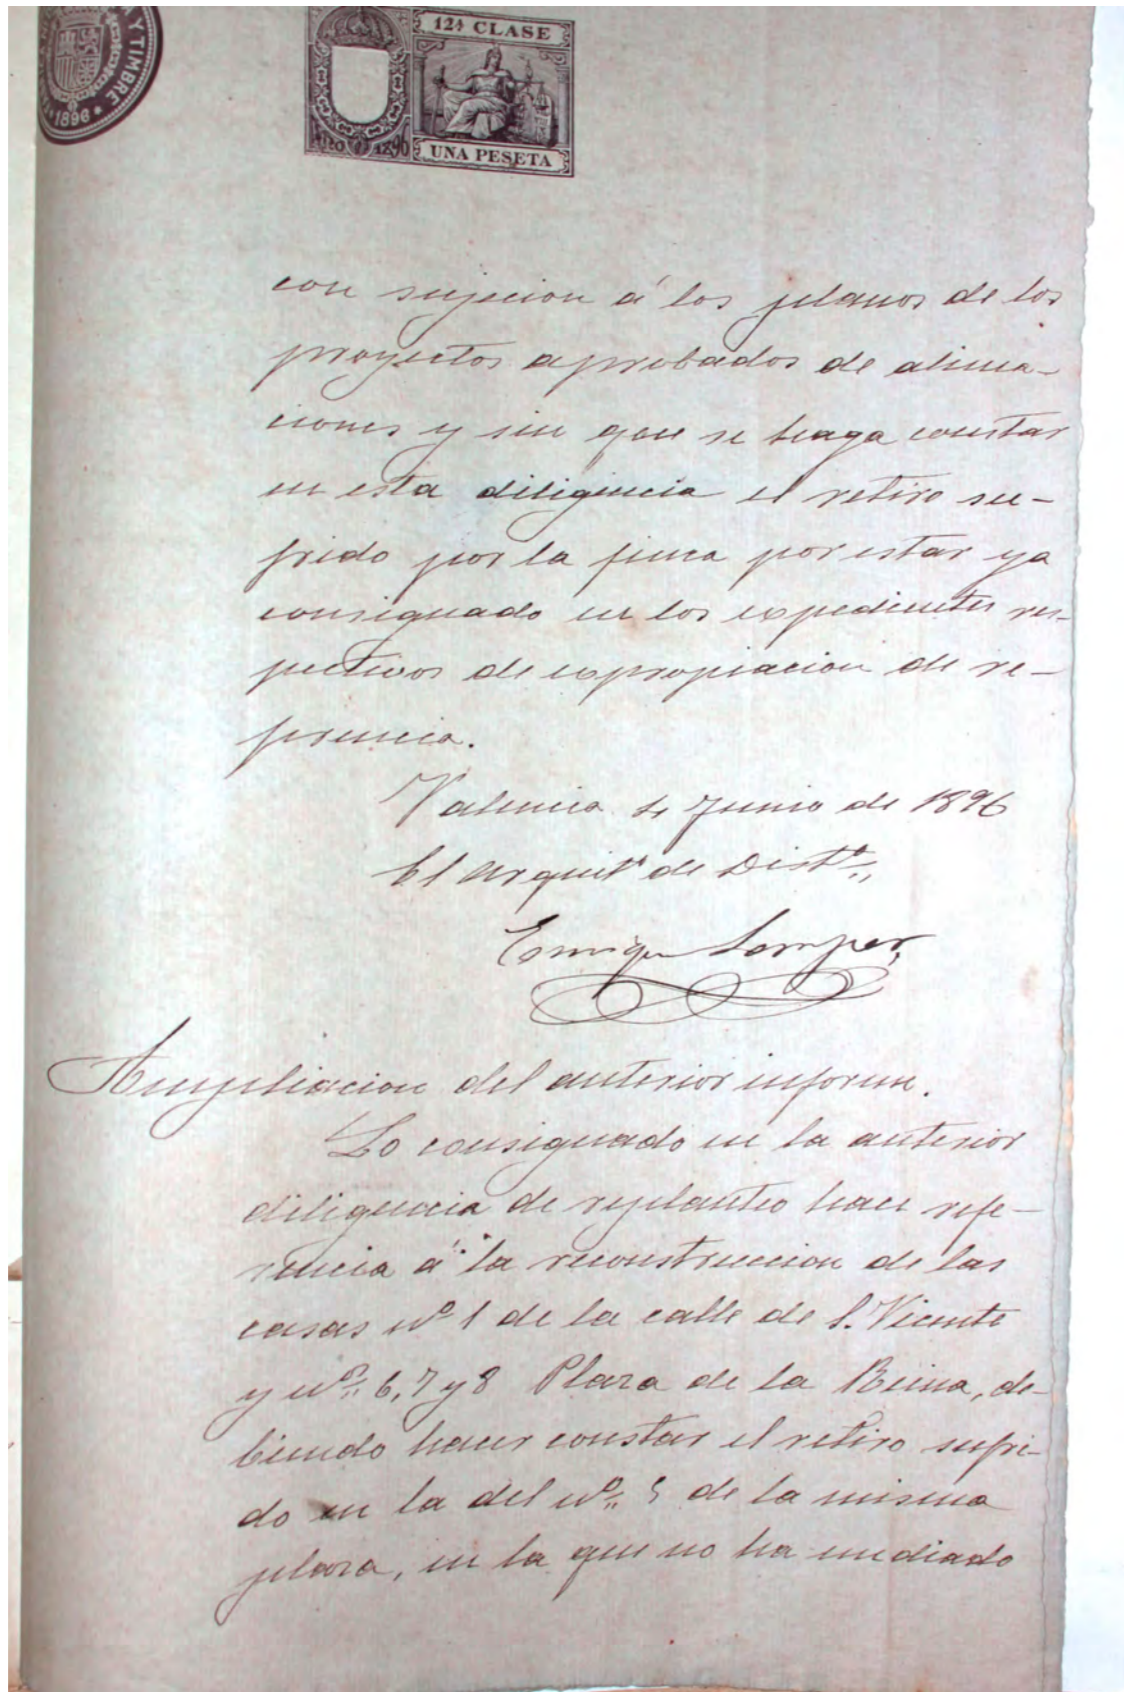 Y TIMBRE
1896
12ª CLASE
AÑO 1896
UNA PESETA
con sujecion á los planos de los
proyectos aprobados de alinea-
ciones y sin que se haga constar
en esta diligencia el retiro su-
frido por la finca por estar ya
consignado en los expedientes res-
pectivos de expropiacion de re-
ferencia.
Valencia 4 Junio de 1896
El Arquitº de Distº,,
Enrique Semper,
Ampliacion del anterior informe.
Lo consignado en la anterior
diligencia de replanteo hace refe-
rencia á la reconstruccion de las
casas nº 1 de la calle de S. Vicente
y nº,, 6, 7 y 8 Plaza de la Reina, de-
biendo hacer constar el retiro sufri-
do en la del nº,, 5 de la misma
plaza, en la que no ha mediado